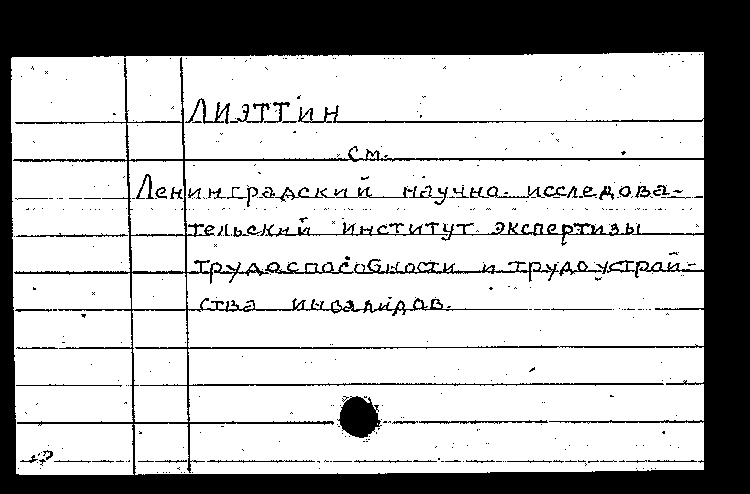 ЛИЭТТИН
см.
Ленинградский научно-исследова-
тельский институт экспертизы
трудоспособности и трудоустрой-
ства инвалидов.